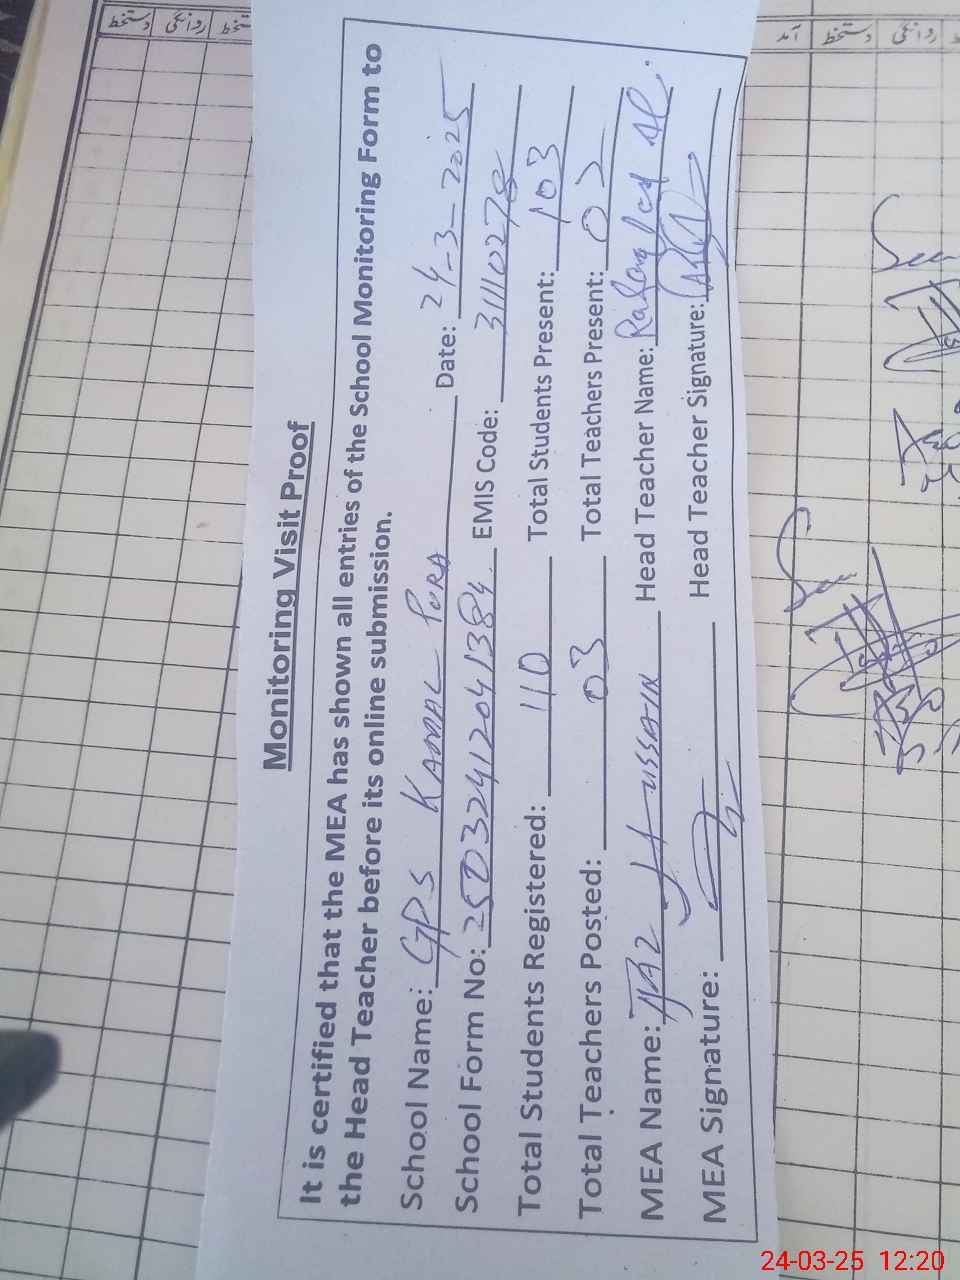 دستخط روانگی دستخط
آمد دستخط روانگی
Monitoring Visit Proof
It is certified that the MEA has shown all entries of the School Monitoring Form to
the Head Teacher before its online submission.
School Name: GPS KAMAL PURA Date: 24-3-2025
School Form No: 25032412041384 EMIS Code: 31110278
Total Students Registered: 110 Total Students Present: 103
Total Teachers Posted: 03 Total Teachers Present:
MEA Name: HUSSAIN Head Teacher Name:
MEA Signature: Head Teacher Signature:
24-03-25 12:20